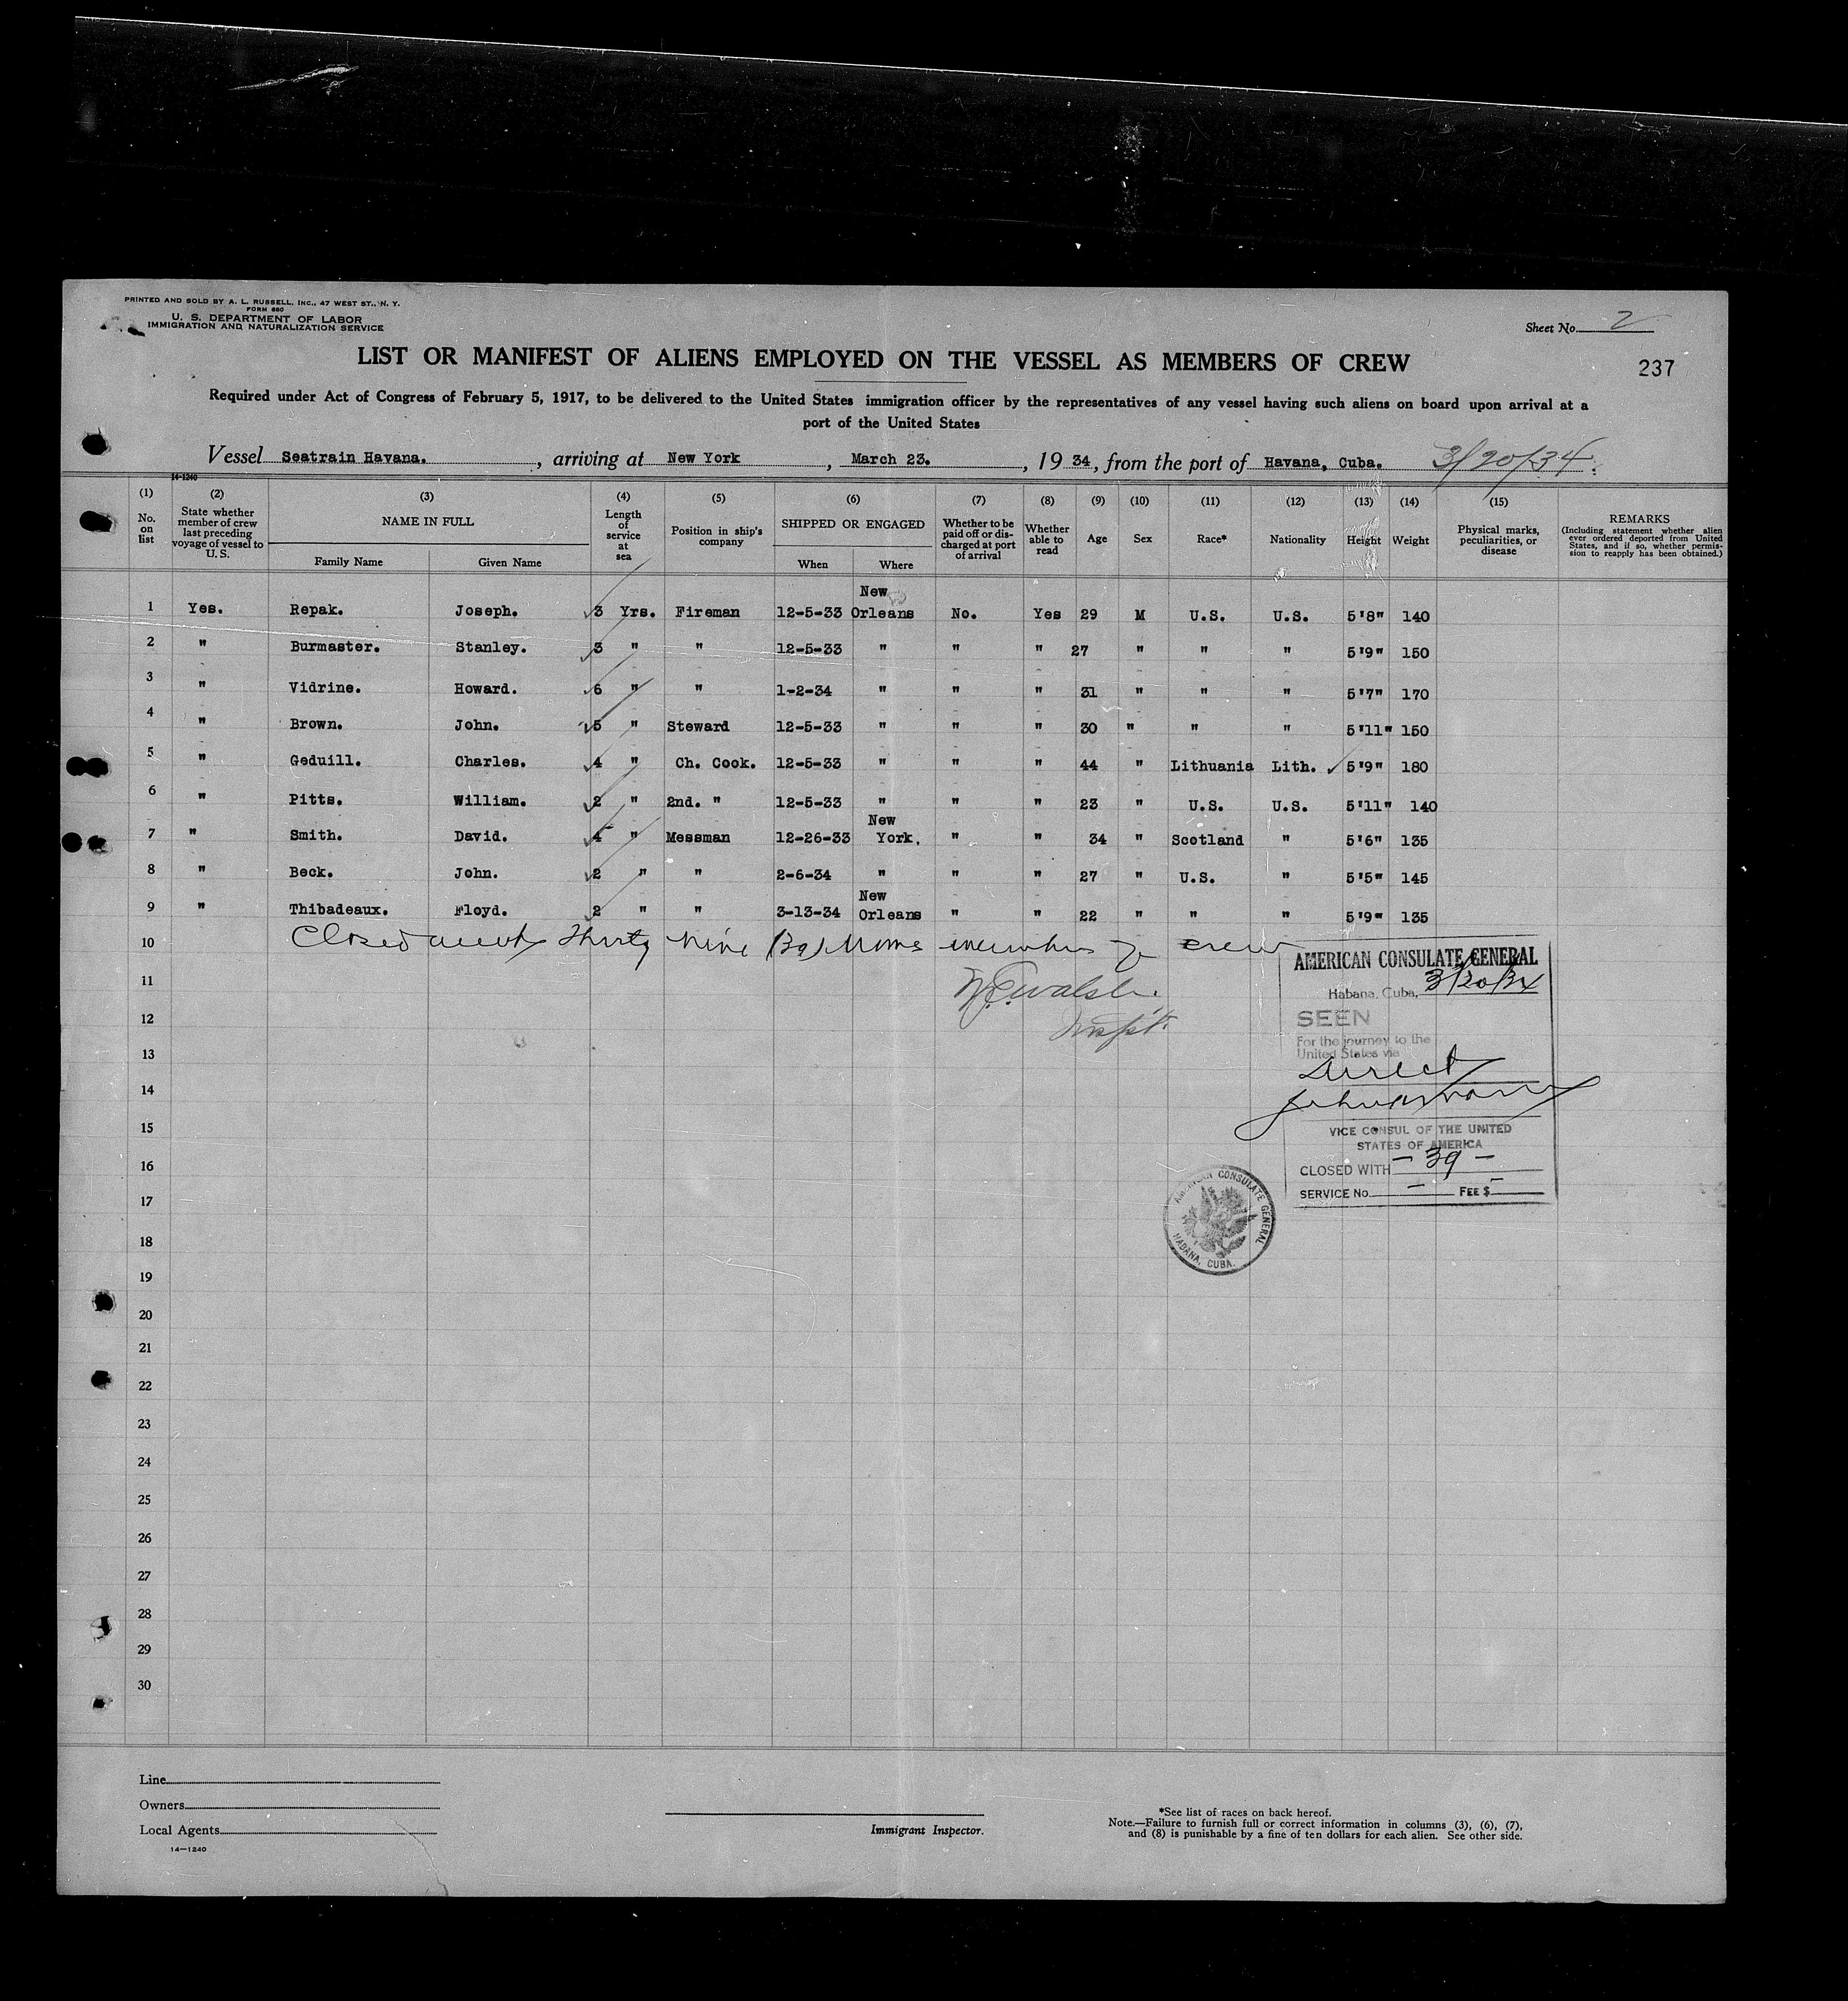 PRINTED AND SOLD BY A. L. RUSSELL, INC., 47 WEST ST., N. Y.
FORM 680
U. S. DEPARTMENT OF LABOR
IMMIGRATION AND NATURALIZATION SERVICE
Sheet No. 2
LIST OR MANIFEST OF ALIENS EMPLOYED ON THE VESSEL AS MEMBERS OF CREW
237
Required under Act of Congress of February 5, 1917, to be delivered to the United States immigration officer by the representatives of any vessel having such aliens on board upon arrival at a
port of the United States
Vessel Seatrain Havana. , arriving at New York , March 23. , 19 34, from the port of Havana, Cuba. 3/20/34
14-1240
(1) No. on list
(2) State whether member of crew last preceding voyage of vessel to U. S.
(3) NAME IN FULL
Family Name Given Name
(4) Length of service at sea
(5) Position in ship's company
(6) SHIPPED OR ENGAGED
When Where
(7) Whether to be paid off or discharged at port of arrival
(8) Whether able to read
(9) Age
(10) Sex
(11) Race*
(12) Nationality
(13) Height
(14) Weight
(15) Physical marks, peculiarities, or disease
REMARKS
(Including statement whether alien ever ordered deported from United States, and if so, whether permission to reapply has been obtained.)
1 Yes. Repak. Joseph. 3 Yrs. Fireman 12-5-33 New Orleans No. Yes 29 M U.S. U.S. 5'8" 140
2 " Burmaster. Stanley. 3 " " 12-5-33 " " " 27 " " " 5'9" 150
3 " Vidrine. Howard. 6 " " 1-2-34 " " " 31 " " " 5'7" 170
4 " Brown. John. 5 " Steward 12-5-33 " " " 30 " " " 5'11" 150
5 " Geduill. Charles. 4 " Ch. Cook. 12-5-33 " " " 44 " Lithuania Lith. 5'9" 180
6 " Pitts. William. 2 " 2nd. " 12-5-33 " " " 23 " U.S. U.S. 5'11" 140
7 " Smith. David. 4 " Messman 12-26-33 New York. " " 34 " Scotland " 5'6" 135
8 " Beck. John. 2 " " 2-6-34 " " " 27 " U.S. " 5'5" 145
9 " Thibadeaux. Floyd. 2 " " 3-13-34 New Orleans " " 22 " " " 5'9" 135
10 Closed with Thirty nine (39) members of crew
11
12
13
14
15
16
17
18
19
20
21
22
23
24
25
26
27
28
29
30
AMERICAN CONSULATE GENERAL
Habana, Cuba, 3/20/34
SEEN
For the journey to the
United States via
Direct
VICE CONSUL OF THE UNITED
STATES OF AMERICA
CLOSED WITH - 39 -
SERVICE No. - FEE $ -
AMERICAN CONSULATE GENERAL
HABANA, CUBA.
Line
Owners
Local Agents
14-1240
Immigrant Inspector.
*See list of races on back hereof.
Note.—Failure to furnish full or correct information in columns (3), (6), (7),
and (8) is punishable by a fine of ten dollars for each alien. See other side.